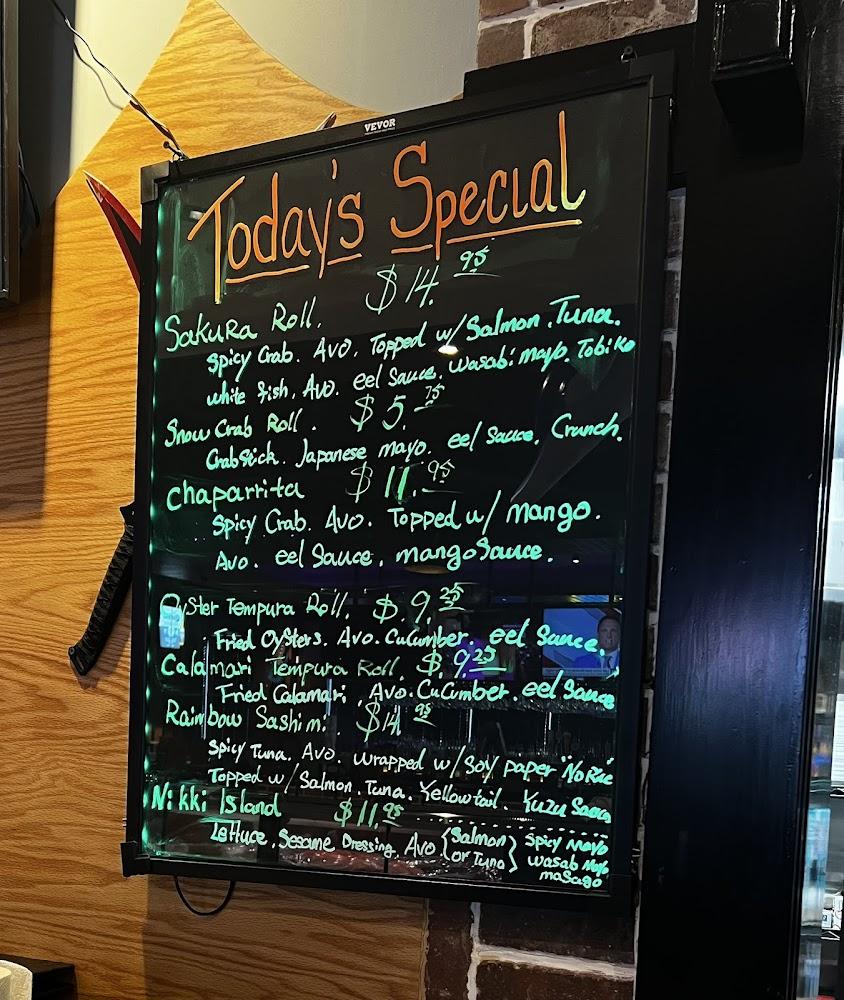 VEVOR
Today's Special
Sakura Roll. $14.95
Spicy Crab. Avo. Topped w/Salmon.Tuna.
white fish. Avo. eel Sauce. wasabi mayo. Tobiko
Snow Crab Roll. $5.75
CrabStick. Japanese mayo. eel Sauce. Crunch.
Chaparrita $11.95
Spicy Crab. Avo. Topped w/ mango.
Avo. eel Sauce. mango Sauce.
Oyster Tempura Roll. $.9.25
Fried Oysters. Avo. Cucumber. eel Sauce.
Calamari Tempura Roll. $.9.25
Fried Calamari. Avo. Cucumber. eel Sauce
Rainbow Sashimi. $14.95
Spicy Tuna. Avo. wrapped w/ Soy paper "No Rice"
Topped w/ Salmon. Tuna. Yellowtail. Yuzu Sauce
Nikki Island $11.95
Lettuce. Sesame Dressing. Avo {Salmon or Tuna} Spicy Mayo
wasab Mayo
maSago